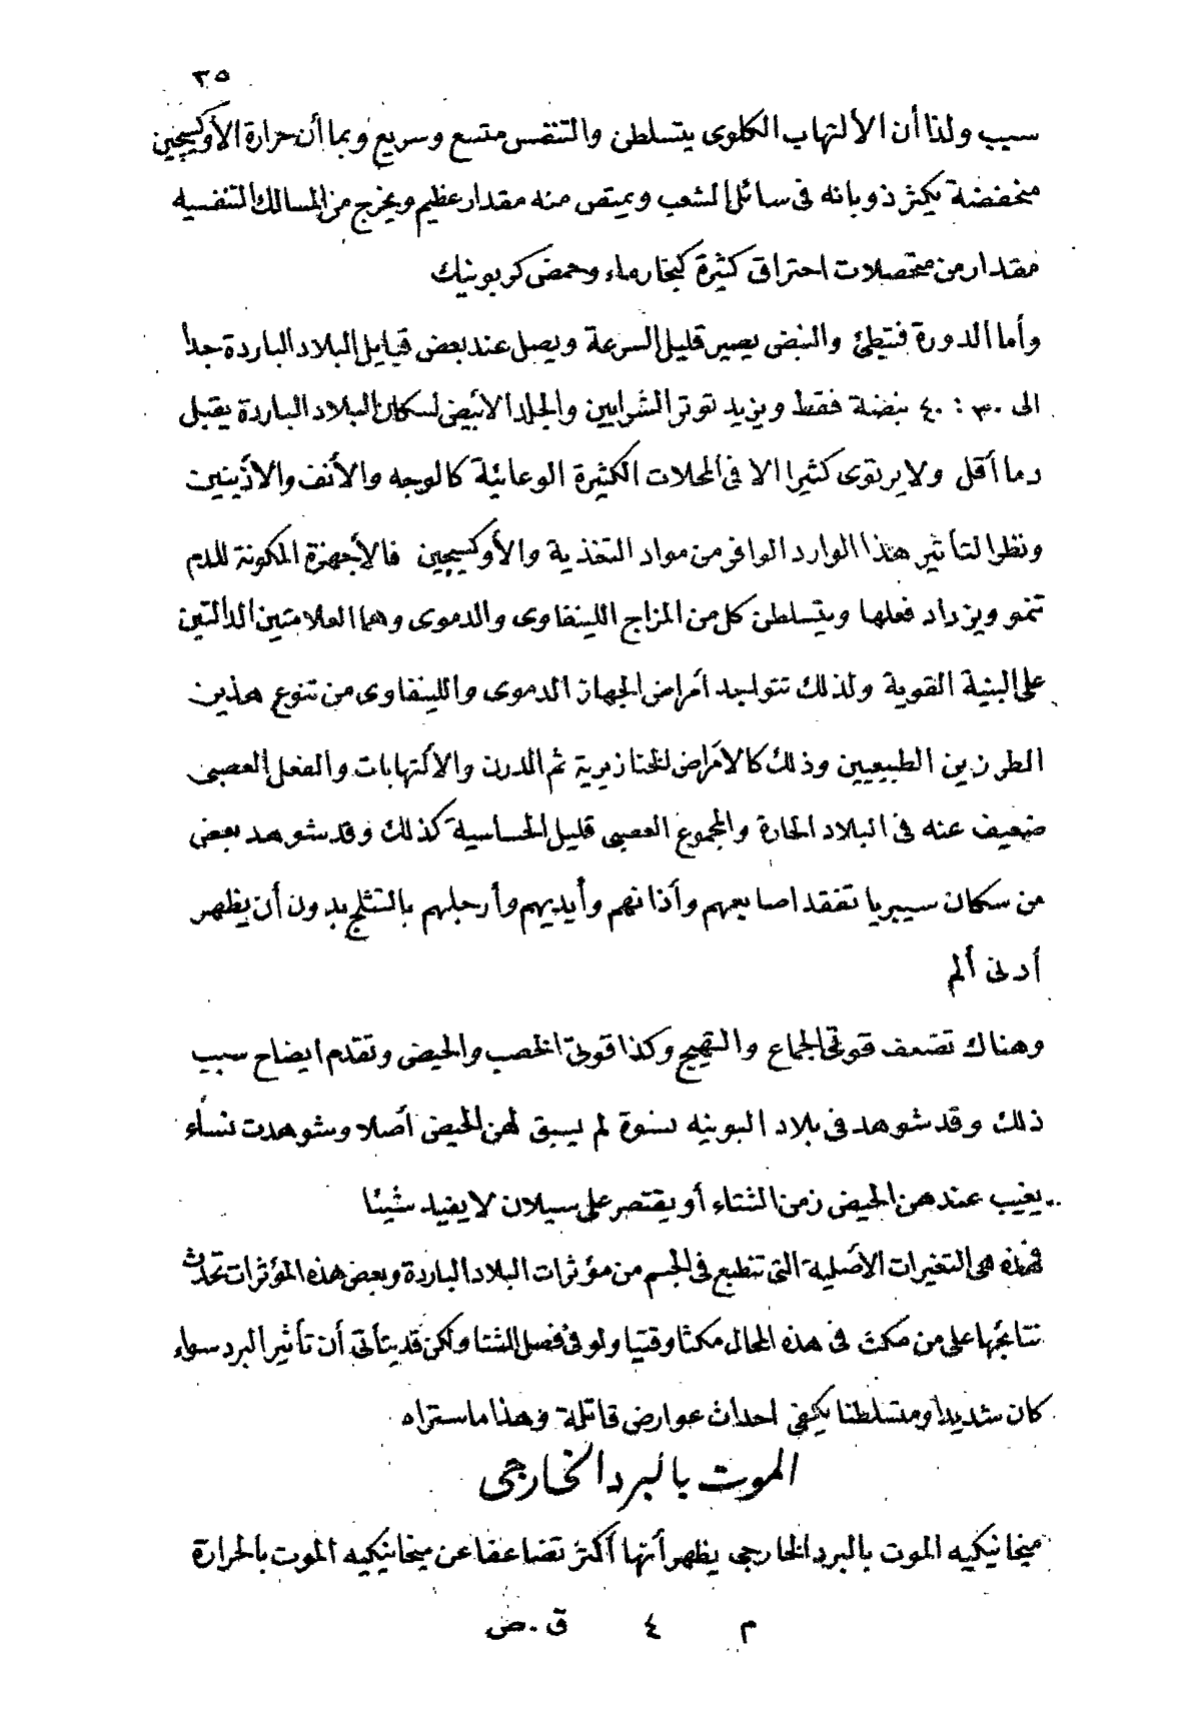 ٣٥
سبب ولذا أن الألتهاب الكلوى يتسلطن والتنفس متسع وسريع وبما أن حرارة الأوكسيچين
منخفضة يكثر ذوبانه فى سائل الشعب ويمتص منه مقدار عظيم ويخرج من المسالك التنفسيه
مقدار من متحصلات احتراق كثيرة كبخار ماء وحمض كربونيك
وأما الدورة فتبطئ والنبض يصير قليل السرعة ويصل عند بعض قبايل البلاد الباردة جدا
الى ٣٠ : ٤٠ نبضة فقط ويزيد توتر الشرايين والجلد الأبيض لسكان البلاد الباردة يقبل
دما أقل ولا يرتوى كثيرا الا فى المحلات الكثيرة الوعائية كالوجه والأنف والأذينين
ونظرا لتأثير هذا الوارد الوافر من مواد التغذية والأوكسيچين فالأجهزة المكونة للدم
تنمو ويزداد فعلها ويتسلطن كل من المزاج اللينفاوى والدموى وهما العلامتين الدالتين
على البنية القوية ولذلك تتولد أمراض الجهاز الدموى واللينفاوى من تنوع هذين
الطرزين الطبيعيين وذلك كالأمراض الخنازيرية ثم الدرن والألتهابات والفعل العصبى
ضعيف عنه فى البلاد الحارة والمجموع العصبى قليل الحساسية كذلك وقد شوهد بعض
من سكان سيبريا تفقد اصابعهم وأذانهم وأيديهم وأرجلهم بالتثلج بدون أن يظهر
أدنى ألم
وهناك تضعف قوتى الجماع والتهيج وكذا قوتى الخصب والحيض وتقدم ايضاح سبب
ذلك وقد شوهد فى بلاد البونيه نسوة لم يسبق لهن الحيض أصلا وشوهدت نساء
يغيب عندهن الحيض زمن الشتاء أو يقتصر على سيلان لا يفيد شيئا
فهذه هى التغيرات الأصلية التى تنطبع فى الجسم من مؤثرات البلاد الباردة وبعض هذه المؤثرات تحدث
نتائجها على من مكث فى هذه المحال مكثا وقتيا ولو فى فصل الشتا ولكن قد يتأتى أن تأثير البرد سواء
كان شديدا ومتسلطنا يكفى احداث عوارض قاتلة وهذا ما ستراه
الموت بالبرد الخارجى
ميخانيكيه الموت بالبرد الخارجى يظهر أنها أكثر تضاعفا عن ميخانيكيه الموت بالحرارة
م ٤ ق . ص